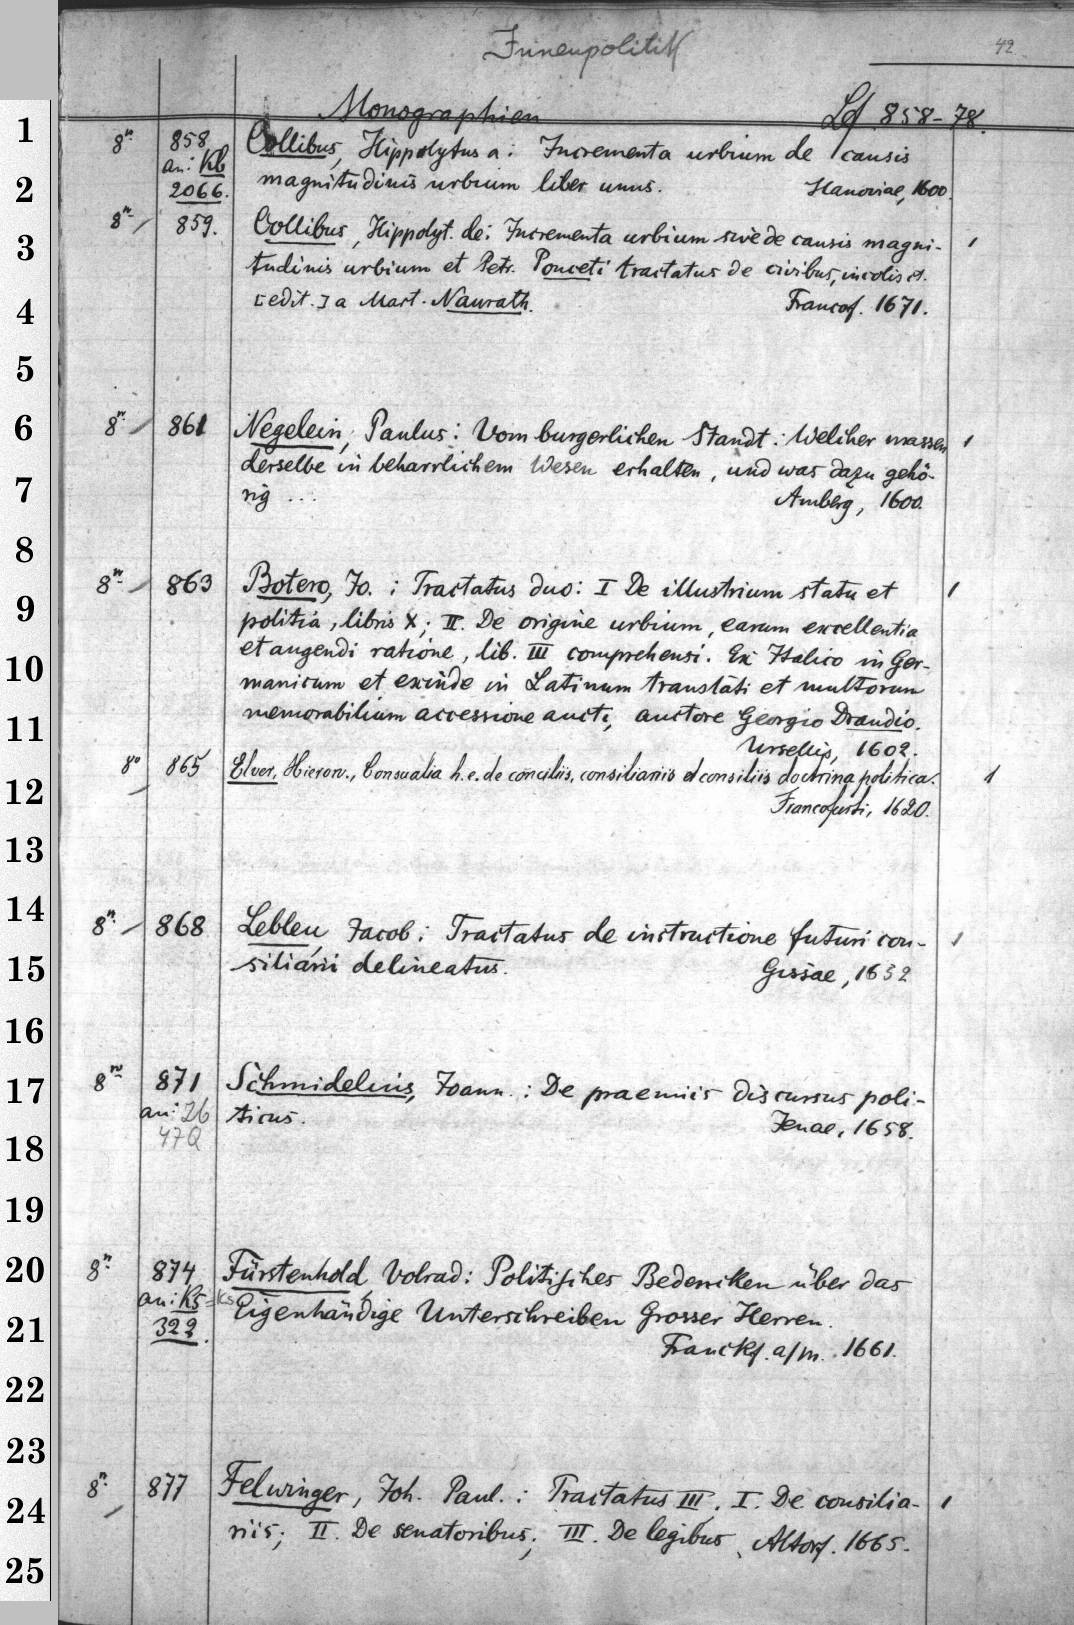 Innenpolitik
42
Monographien Ld 858-78.
8° 858 Collibus, Hippolytus a: Incrementa urbium de causis
an: Kb magnitudinis urbium liber unus. Hanoviae, 1600.
2066.
8° 859. Collibus, Hippolyt. de: Incrementa urbium sive de causis magni-
tudinis urbium et Petr. Ponceti tractatus de civibus, incolis et.
[edit.] a Mart. Naurath. Francof. 1671.
8° 861 Negelein, Paulus: Vom burgerlichen Standt: Welcher massen
derselbe in beharrlichem Wesen erhalten, und was dazu gehö-
rig ... Amberg, 1600.
8° 863 Botero, Jo.: Tractatus duo: I De illustrium statu et
politia, libris X; II. De origine urbium, earum excellentia
et augendi ratione, lib. III comprehensi. Ex Italico in Ger-
manicum et exinde in Latinum translati et multorum
memorabilium accessione aucti, auctore Georgio Draudio.
Ursellis, 1602.
8° 865 Elver, Hieron., Consualia h. e. de conciliis, consiliariis et consiliis doctrina politica.
Francofurti, 1620.
8° 868 Lebleu, Jacob: Tractatus de instructione futuri con-
siliarii delineatus. Gissae, 1632
8° 871 Schmidelius, Joann.: De praemiis discursus poli-
an: Ib ticus. Jenae, 1658.
47Q
8° 874 Fürstenhold, Volrad: Politisches Bedencken über das
an: Ks = Ks Eigenhändige Unterschreiben Grosser Herren.
322. Franckf. a/m. 1661.
8° 877 Felwinger, Joh. Paul.: Tractatus III, I. De consilia-
riis; II. De senatoribus; III. De legibus, Altorf. 1665.
1
2
3
4
5
6
7
8
9
10
11
12
13
14
15
16
17
18
19
20
21
22
23
24
25